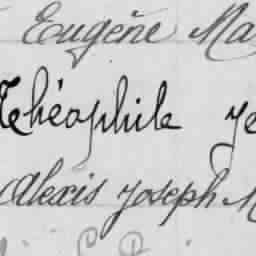 Eugène Ma
Théophile Je
Alexis Joseph M